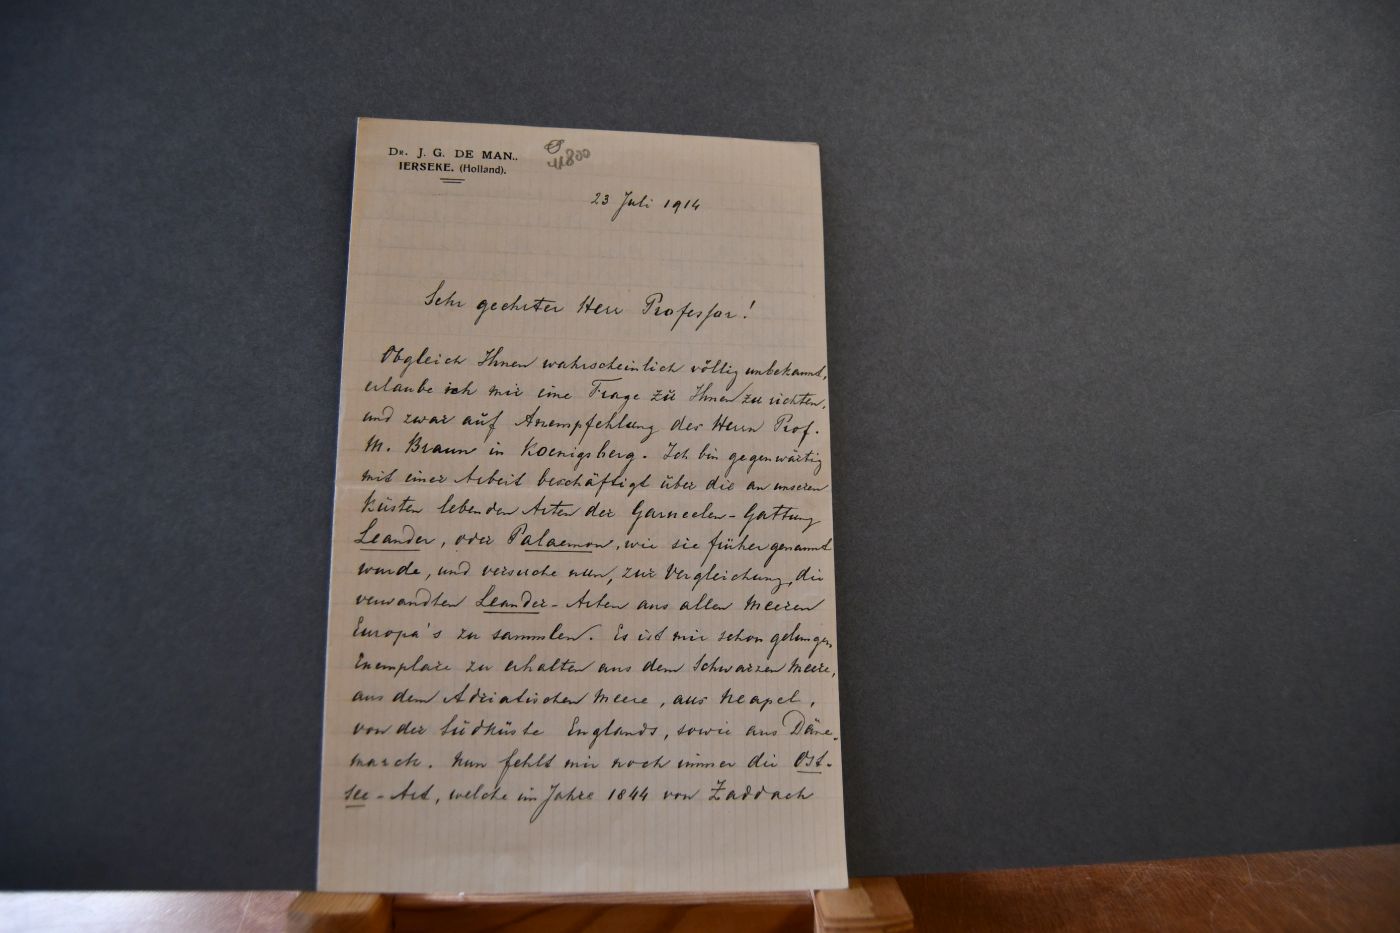 DR. J. G. DE MAN.,
IERSEKE. (Holland).
23 Juli 1914
Sehr geehrter Herr Professor!
Obgleich Ihnen wahrscheinlich völlig unbekannt,
erlaube ich mir eine Frage zu Ihnen zu richten,
und zwar auf Anempfehlung des Herrn Prof.
M. Braun in Koenigsberg. Ich bin gegenwärtig
mit einer Arbeit beschäftigt über die an unseren
Küsten lebenden Arten der Garneelen-Gattung
Leander, oder Palaemon, wie sie früher genannt
wurde, und versuche nun, zur Vergleichung, die
verwandten Leander-Arten aus allen Meeren
Europa's zu sammlen. Es ist mir schon gelungen
Exemplare zu erhalten aus dem Schwarzen Meere,
aus dem Adriatischen Meere, aus Neapel,
von der Südküste Englands, sowie aus Däne-
marck. Nun fehlt mir noch immer die Ost-
see-Art, welche im Jahre 1844 von Zaddach